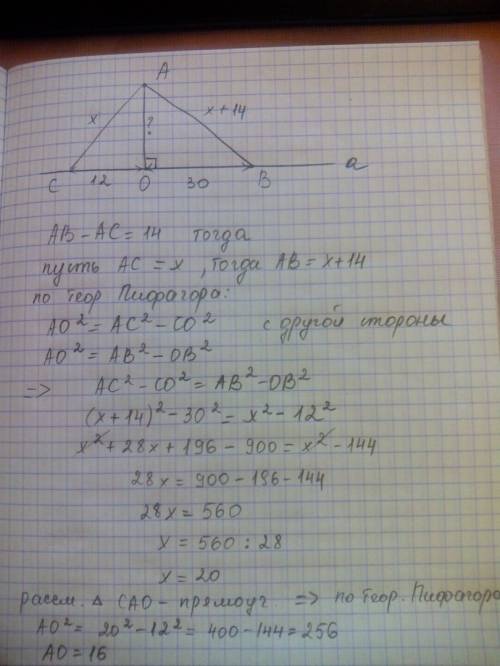 A
x
x+14
?
C 12 O 30 B a
AB - AC = 14 тогда
пусть AC = x, тогда AB = x+14
по теор Пифагора:
AO² = AC² - CO² с другой стороны
AO² = AB² - OB²
=> AC² - CO² = AB² - OB²
(x+14)² - 30² = x² - 12²
x² + 28x + 196 - 900 = x² - 144
28x = 900 - 196 - 144
28x = 560
x = 560 : 28
x = 20
рассм. △ CAO - прямоуг. => по теор. Пифагора
AO² = 20² - 12² = 400 - 144 = 256
AO = 16